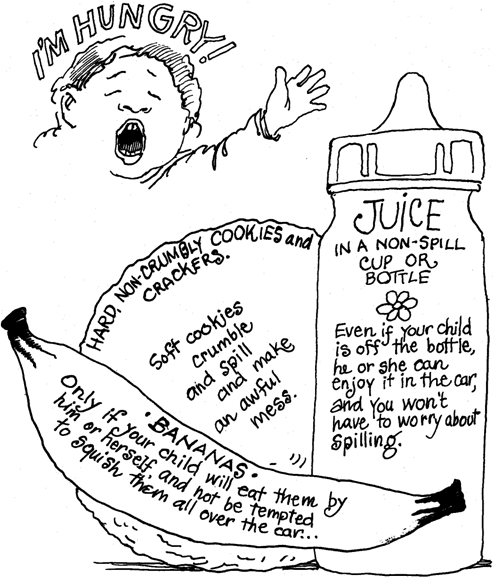 I'M HUNGRY!
HARD, NON-CRUMBLY COOKIES and
CRACKERS.
Soft cookies
crumble
and spill
and make
an awful
mess.
• BANANAS •
Only if your child will eat them by
him or herself, and not be tempted
to squish them all over the car...
JUICE
IN A NON-SPILL
CUP OR
BOTTLE
Even if your child
is off the bottle,
he or she can
enjoy it in the car,
and you won't
have to worry about
spilling.